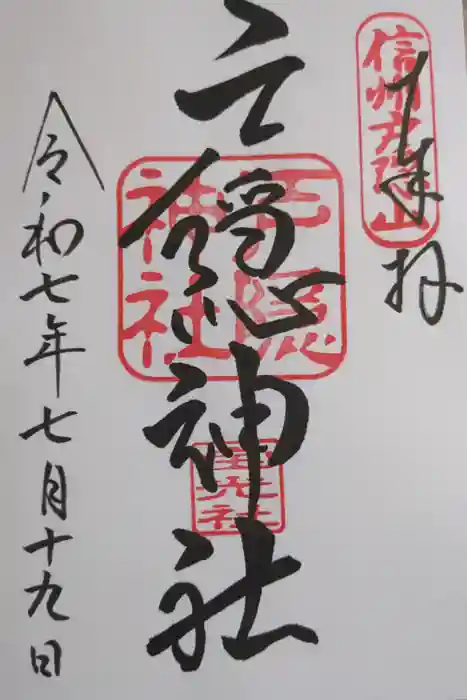 信州戸隠山
奉拝
戸隠神社
戸隠神社
宝光社
令和七年七月十九日